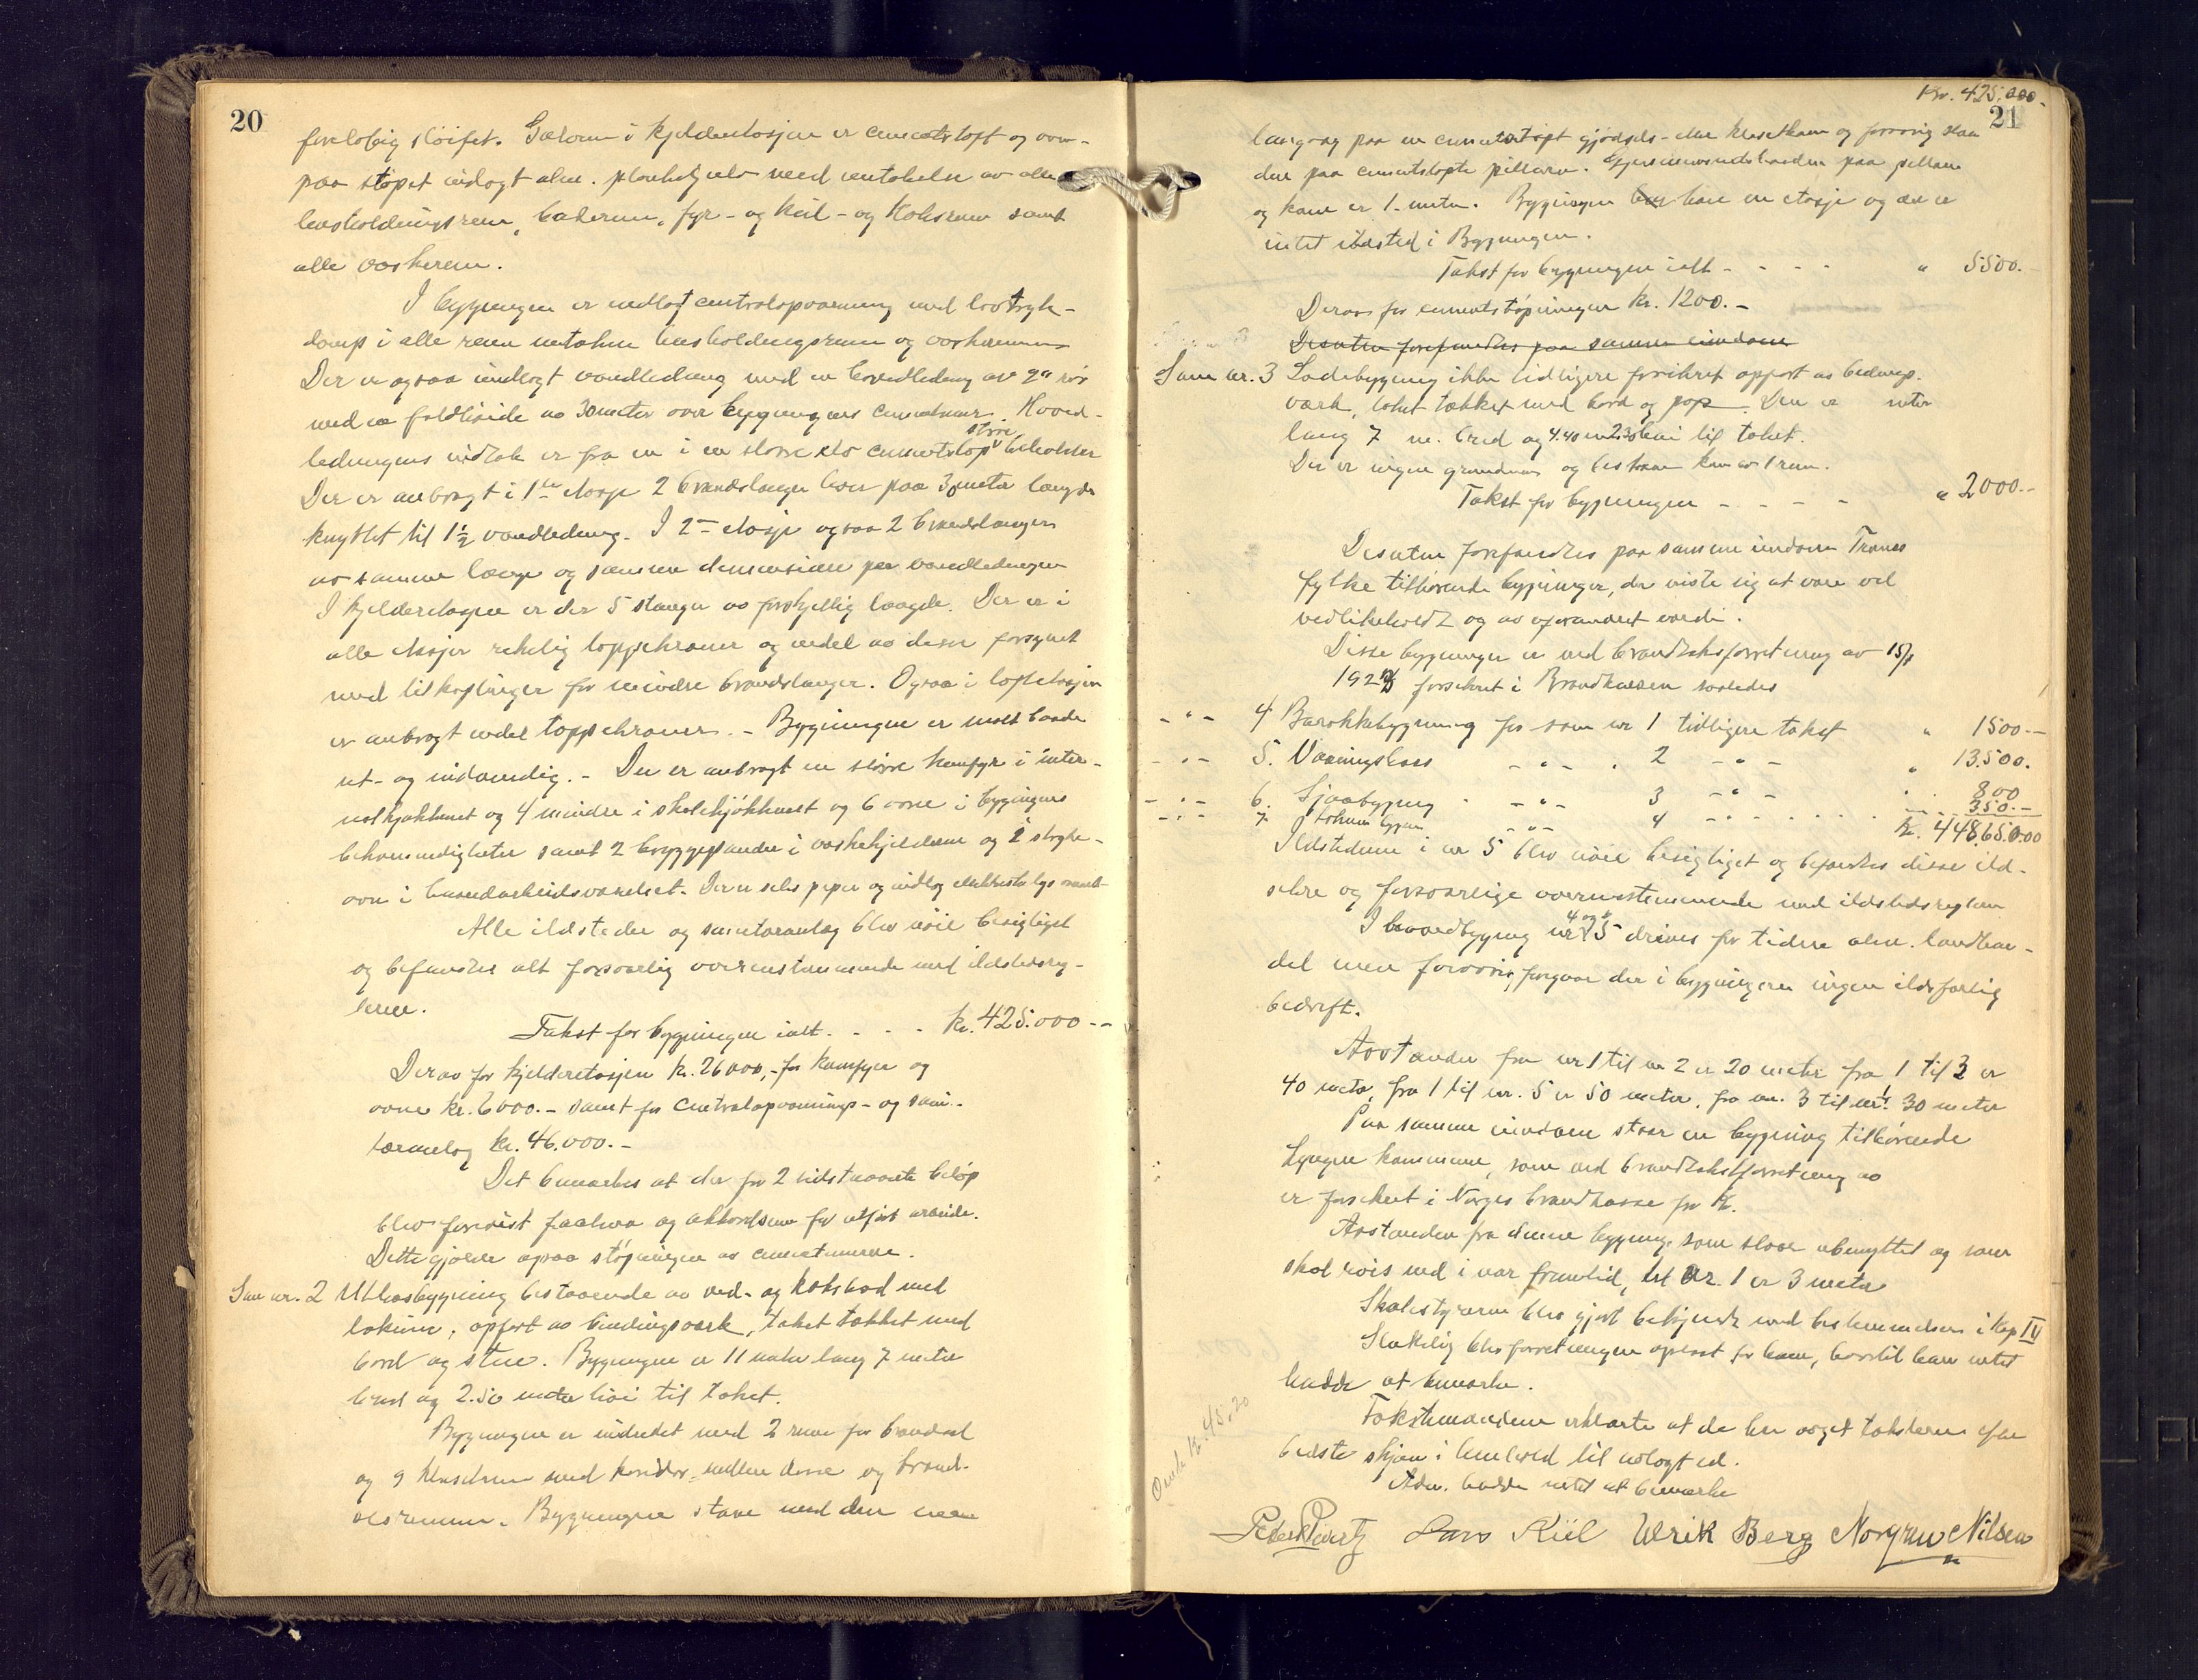 20
foreløbig sløifet. Gulvene i kjelderetasjen er cementstøpt og oven-
paa støpet indlagt alm. plankegulv med undtakelse av alle
husholdningsrum, baderum, fyr- og kul- og koksrum samt
alle vaskerum.
I bygningen er indlagt centralopvarmning med lavtryk-
damp i alle rum untaken husholdningsrum og vaskerum
Der er ogsaa indlagt vandledning med en hovedledning av 2" rør
med en faldhøide av 30 meter over bygningens . Hoved-
ledningens indtak er fra en i en større cementstøpt beholder
større
Der er anbragt i 1ste etasje 2 brandslanger hver paa 30 meter længde
knyttet til 1½ vandledning. I 2den etasje ogsaa 2 brandslanger
av samme længde og samme dimension paa vandledningen
I kjelderetasjen er der 5 slanger av forskjellig længde. Der er i
alle etasjer rikelig tappekraner og endel av disse forsynet
med tilkoplinger for mindre brandslanger. Ogsaa i loftetasjen
er anbragt endel tappekraner. - Bygningen er malt baade
ut- og indvendig. - Der er anbragt en større komfyr i inter-
natkjøkkenet og 4 mindre i skolekjøkkenet og 6 ovne i bygningens
bekvemmeligheter samt 2 bryggepander i vaskekjelderen og 1 stryke-
ovn i haandarbeidsværelset. Der er seks piper og indlagt elektrisk lys
Alle ildsteder og sanitæranlæg blev nøie besigtiget
og befandtes alt forsvarlig overensstemmende med ildstedsreg-
lerne.
Takst for bygningen ialt. - - - kr. 425.000 --
Derav for kjelderetasjen kr. 26000,- for komfyrer og
ovne kr. 6000.- samt for centralopvarmnings- og sani-
tæranlæg kr. 46.000.-
Det bemerkes at der for 2 sidstnævnte beløp
blev forevist faktura og akkordsum for utført arbeide.
Dette gjælder ogsaa støpningen av cementmurene.
Lune nr. 2 Uthusbygning bestaaende av ved- og koksbod med
lokum, opført av bindingsverk, taket tækket med
bord og sten. Bygningen er 11 meter lang 7 meter
bred og 2.50 meter høi til taket.
Bygningen er indredet med 2 rum for brændsel
og 9 klosetrum med koridor mellem disse og brænd-
selsrummen. Bygningen staar med den ene
Kr. 425.000.-
21
langvæg paa en cementstøpt gjødsels- eller klosetkum og forøvrig staar
den paa cementstøpte pillarer. Gjennemsnitshøiden paa pillarer
og kum er 1- meter. Bygningen har en etasje og der er
intet ildsted i Bygningen.
Takst for bygningen ialt - - - - " 5500.-
Derav for cementstøpningen kr. 1200.-
Desuten forefandtes paa samme eiendom
Lune nr. 3 Ladebygning ikke tidligere forsikret opført av bindings-
verk, taket tækket med bord og pap. Den er meter
lang 7 m. bred og 4.40 m 2.30 høi til taket.
Der er ingen grundmur og bestaar kun av 1 rum.
Takst for bygningen - - - - " 2000.--
Desuten forefandtes paa samme eiendom Troms
fylke tilhørende bygninger, der viste sig at være vel
vedlikeholdt og av uforandret værdi.
Disse bygninger er ved brandtakstforretning av 15/1
192 forsikret i Brandkassen saaledes
- " - 4 Barakkebygning før som nr 1 tidligere takst " 1500 --
- " - 5. Vaaningshus - " - . 2 - " - " 13.500.
- " - 6. Sjøbygning - " - 3 - " - " 800
- " - 7. bygn. - " - 4 - " - - - - - 350.--
kr. 448.650.00
Ildstederne i nr 5 blev nøie besigtiget og befandtes disse ild-
sikre og forsvarlige overensstemmende med ildstedsreglerne
I hovedbygning nr 5 drives for tiden alm. landhan-
4 og
del men forøvrig foregaar der i bygningerne ingen ildsfarlig
bedrift.
Avstanden fra nr 1 til nr 2 er 20 meter fra 1 til 3 er
40 meter, fra 1 til nr. 5 er 50 meter, fra nr. 3 til nr 1. 30 meter
Paa samme eiendom staar en bygning tilhørende
Lyngen kommune, som ved brandtakstforretning av
er forsikret i Norges brandkasse for kr.
Avstanden fra denne bygning, som staar ubenyttet og som
skal rives ned i nær fremtid, til nr. 1 er 3 meter
Skolestyreren blev gjort bekjendt med bestemmelsen i Kap IV
Sluttelig blev forretningen oplæst for ham, hvortil han intet
hadde at bemerke.
Takstmændene erklærte at de har avgit taksterne efter
bedste skjøn i henhold til avlagt ed.
Adm. hadde intet at bemerke
Lars Kiil Ulrik Berg Nilsen